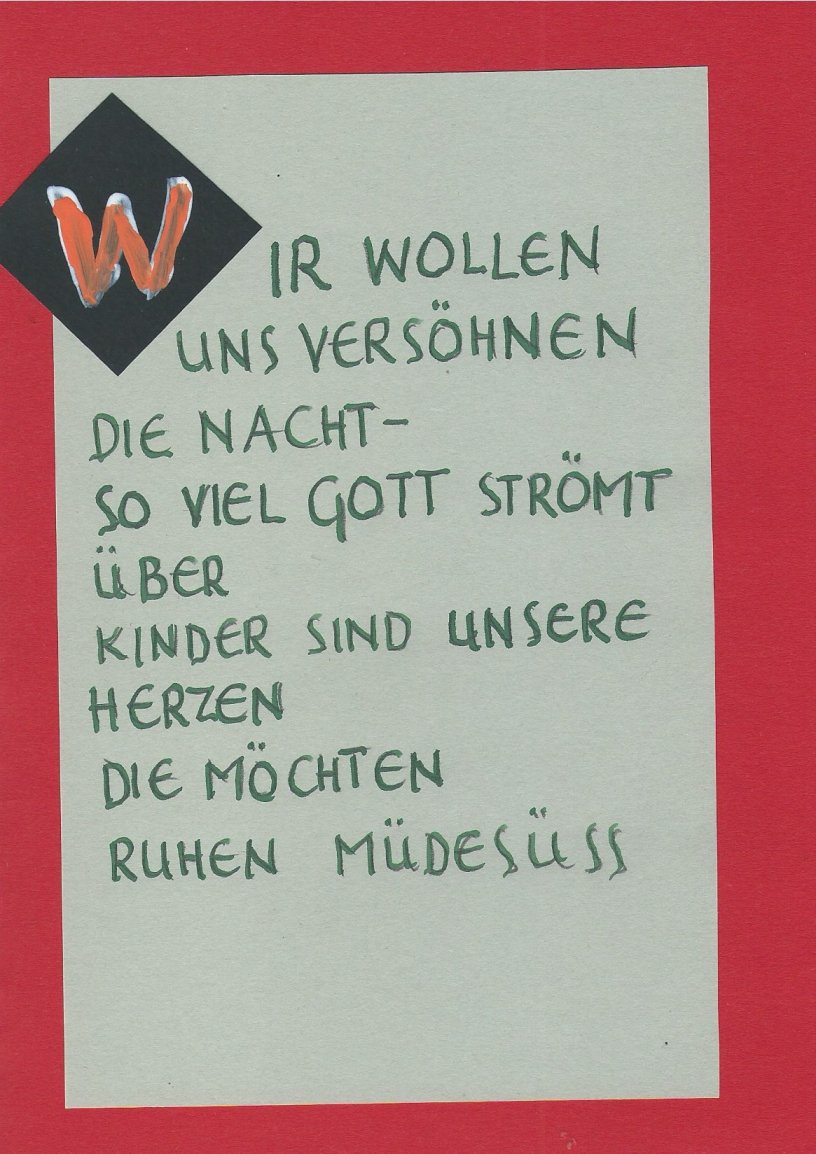 WIR WOLLEN
UNS VERSÖHNEN
DIE NACHT-
SO VIEL GOTT STRÖMT
ÜBER
KINDER SIND UNSERE
HERZEN
DIE MÖCHTEN
RUHEN MÜDESÜSS